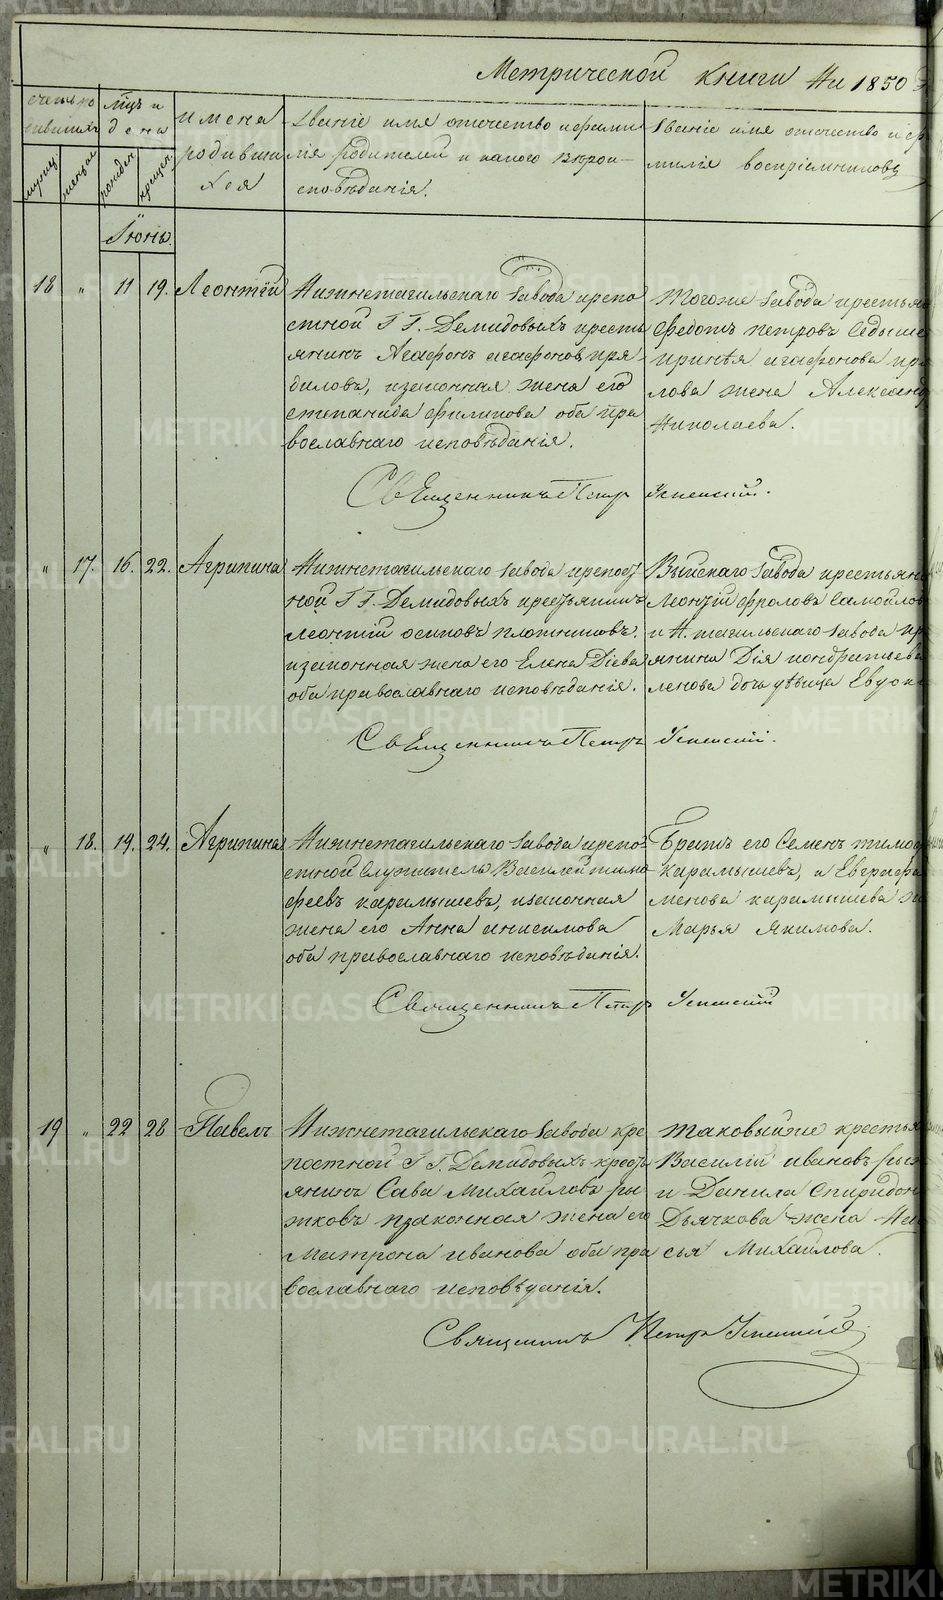 Метрической книги На 1850
счетъ ро
дившихся
мцъ и
дена
имена
родивши
хся
Званіе имя отечество и фами
лія родителей и какого вѣрои-
сповѣданія.
Званіе имя отечество и фа
миліе воспріемниковъ
Іюнь.
18 " 11 19. Леонтій
Нижнетагильскаго завода крепо
стной ГГ. Демидовыхъ кресть
янинъ Агафонъ агафоновъ пря
диловъ, изаконная жена его
степанида филипова оба пра
вославнаго исповѣданія.
Тогоже завода крестьян
федотъ петровъ
агафонова пря
лова жена Александ
Николаева.
Священникъ Петръ Успенскій.
" 17. 16. 22. Агрипина
Нижнетагильскаго завода крепост
ной ГГ. Демидовыхъ крестьянинъ
леонтій осиповъ плотниковъ.
изаконная жена его Елена Діева
оба православнаго исповѣданія.
Выйскаго завода крестьяни
Леонтій фроловъ Самойлов
и Н. тагильскаго завода кр
янина Дія кондратьева
ленова дочь дѣвица Евдок
Священникъ Петръ Успенскій.
" 18. 19. 24. Агрипина
Нижнетагильскаго завода крепо
стной служитель Василей тимо
феевъ карамышевъ, изаконная
жена его Анна анисимова
оба православнаго исповѣданія.
Братъ его Семенъ тимоф
карамышевъ, и Евграфа
менова карамышева же
Марья Якимова.
Священникъ Петръ Успенскій
19 " 22 28 Павелъ
Нижнетагильскаго завода кре
постной ГГ. Демидовыхъ кресть
янинъ Сава Михайловъ ры
жковъ изаконная жена его
Матрона иванова оба пра
вославнаго исповѣданія.
таковыйже крестья
Василій ивановъ рыж
и Данила Спиридон
Дьячкова жена На
сья Михайлова.
Священникъ Петръ Успенскій.
METRIKI.GASO-URAL.RU